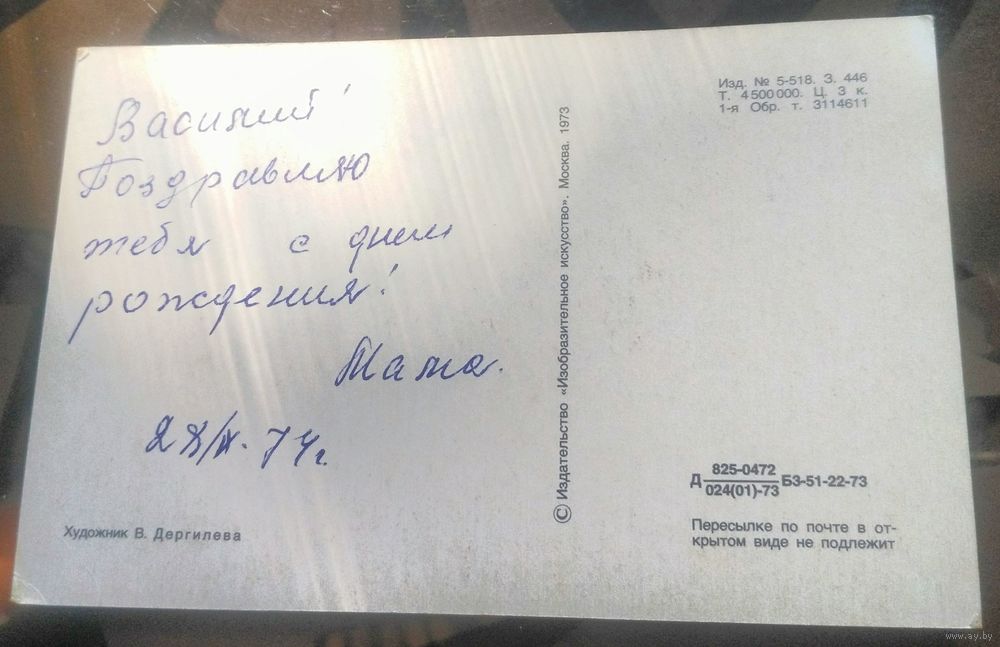 Василий!
Поздравляю
тебя с днем
рождения!
Художник В. Дергилева
© Издательство «Изобразительное искусство». Москва. 1973
Изд. № 5-518. З. 446
Т. 4 500 000. Ц. 3 к.
1-я Обр. т. 3114611
Д 825-0472/024(01)-73 БЗ-51-22-73
Пересылке по почте в от-
крытом виде не подлежит
www.ay.by